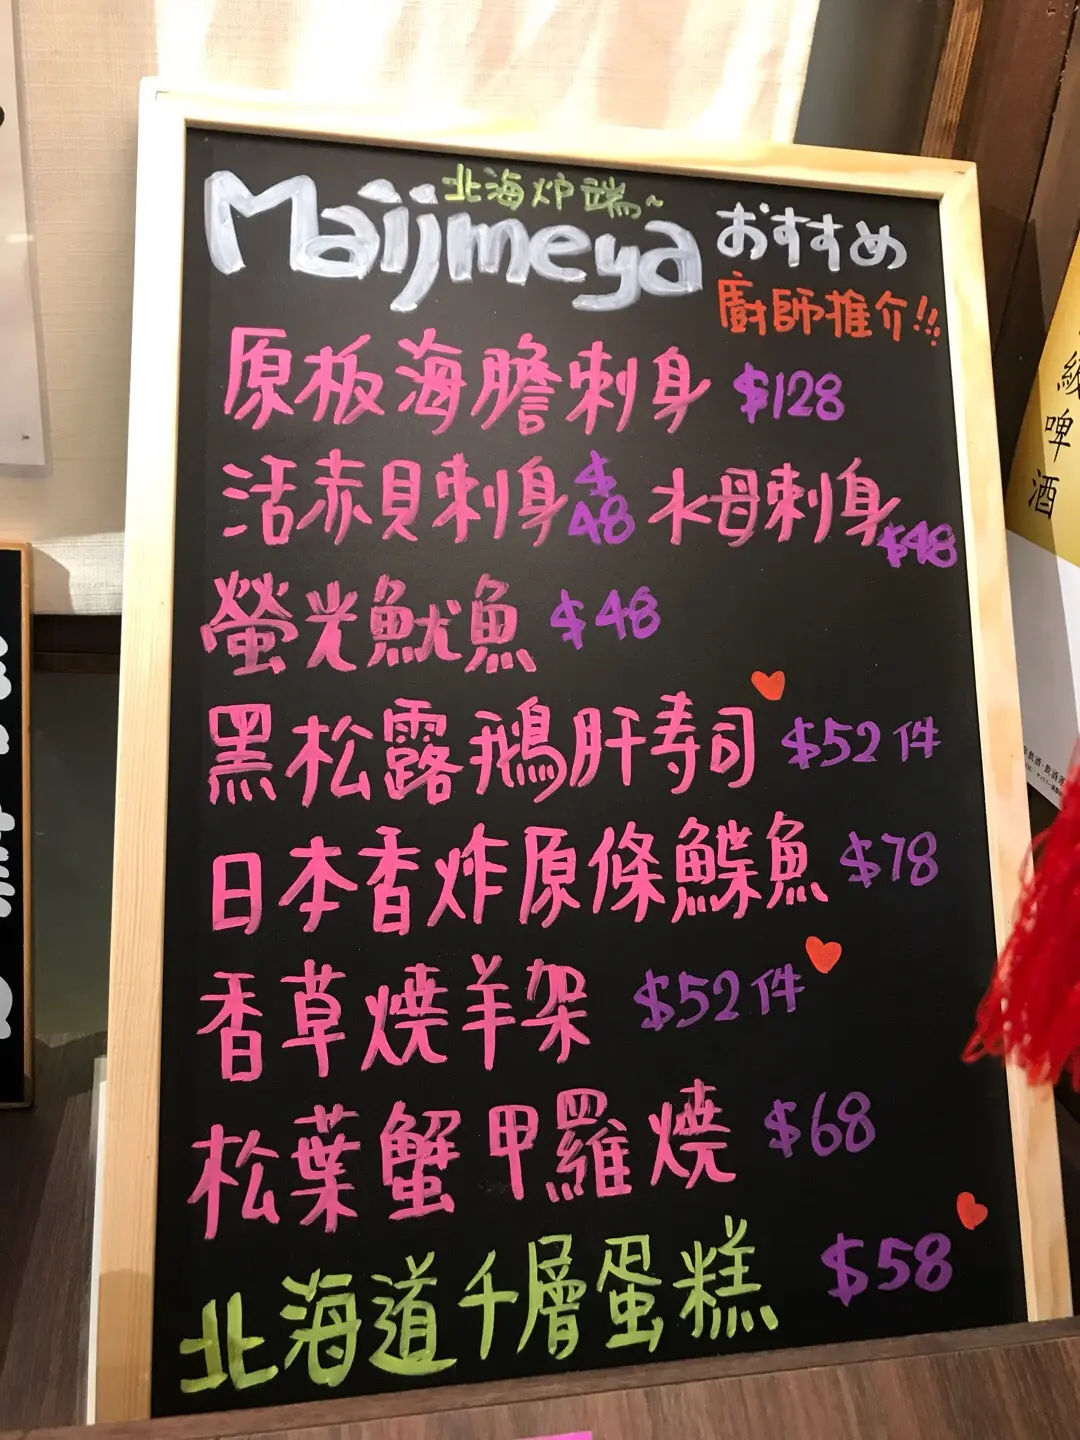 北海炉端~
Maijmeya おすすめ
廚師推介!!
原板海膽刺身 $128
活赤貝刺身 $48 水母刺身 $48
螢光魷魚 $48
黑松露鵝肝寿司 $52件
日本香炸原條鰈魚 $78
香草燒羊架 $52件
松葉蟹甲羅燒 $68
北海道千層蛋糕 $58
啤酒